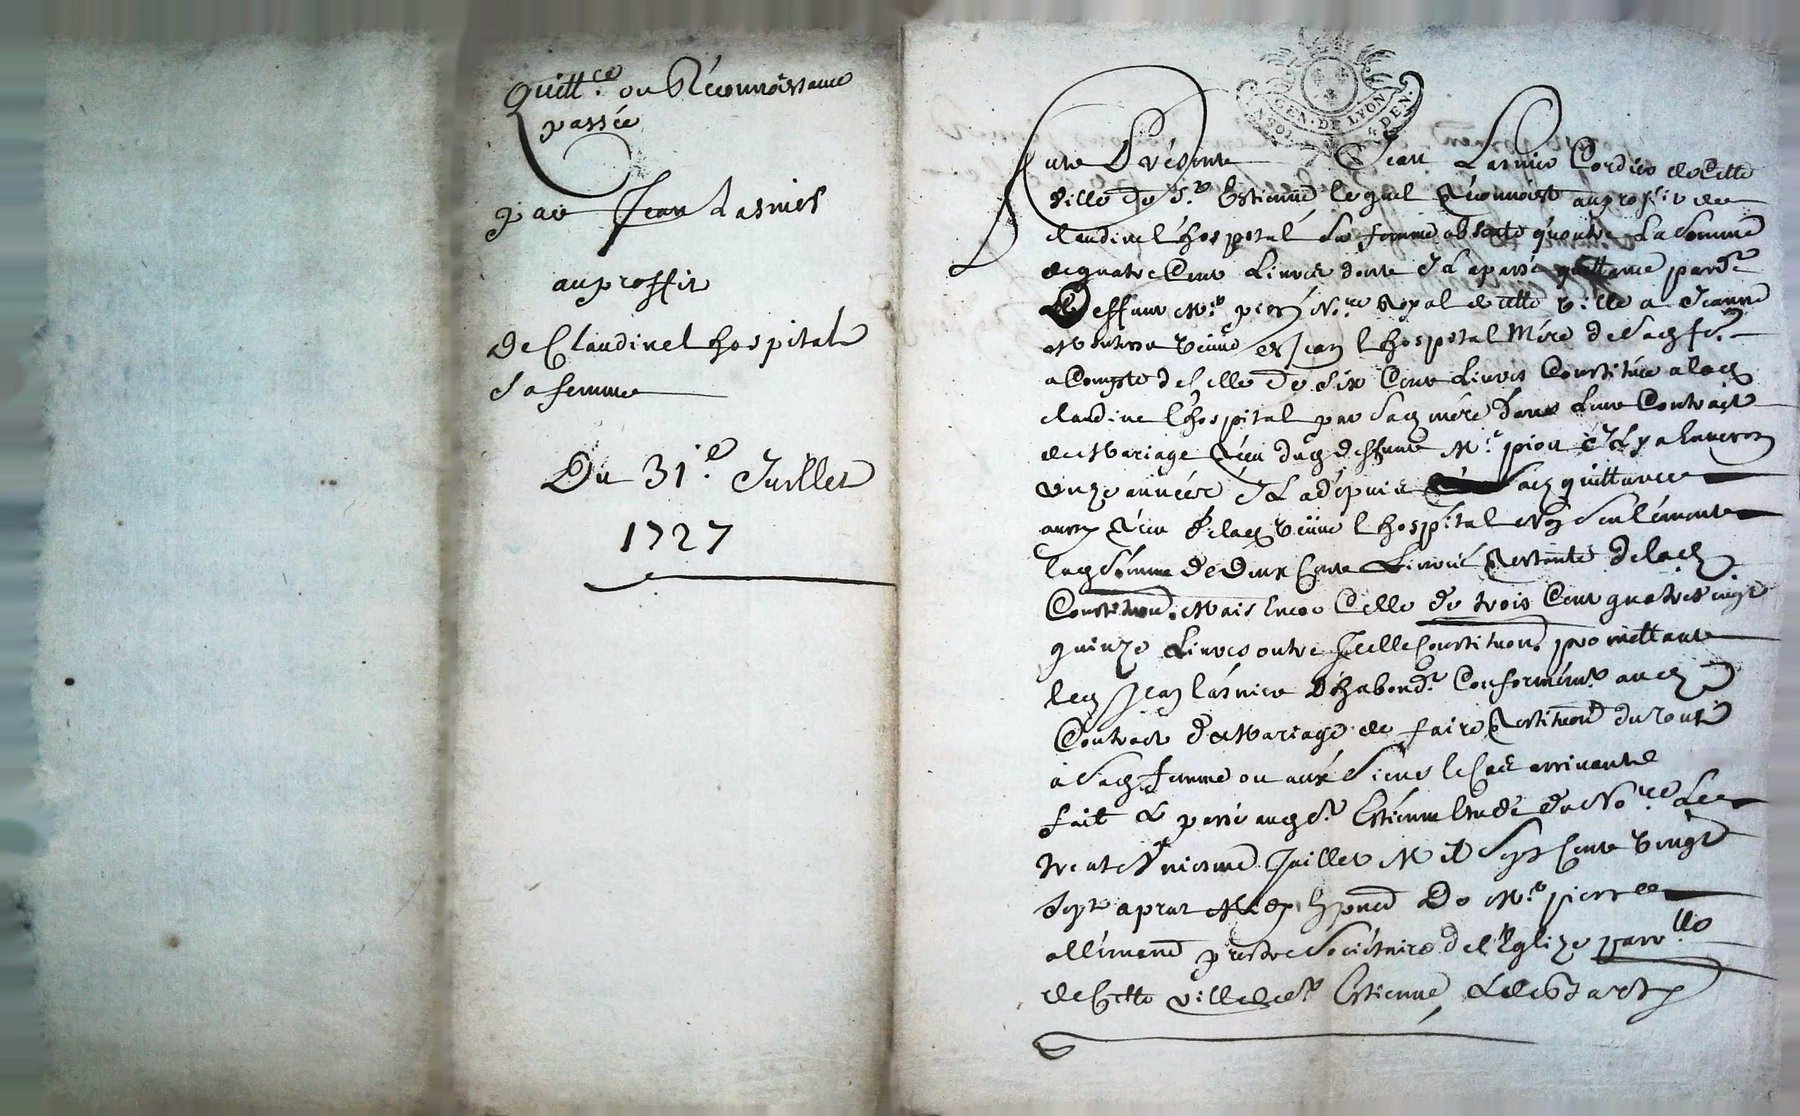 Quitt.ce ou Réconnoissance
passée
par Jean Lasnier
au proffit
De Claudine l hospital
sa femme
Du 31.e Juillet
1727
GEN. DE LYON
4 DEN.
Jean Lasnier Cordier de Cette
ville de St. Estienne lequel Réconnoist au proffit de
claudine l hospital sa femme absente qu'outre La Somme
de quatre Cent Livres dont Il a passé quittance pard.t
deffunt M.e pion N.re Royal de cette ville a Jeanne
veuve de Jean l hospital Mére de sad. fe.
a Compte de Celle de Six Cent Livres Constituée a lad.
claudine l hospital par sad. mére dans Leur Contract
de Mariage Receu dud. deffunt M.e pion Il y a Environ
unze années Il a dépuis sad. quittance
aussy Receu de lad. veuve l hospital Non Seulémente
lad. Somme de Deux Cent Livres Restante de lad.
Constitution. Mais Encor Celle de trois Cent quatre vingt
quinze Livres outre Icelle Constitution. promettant
led. Jean Lasnier D'habond.t Conformémt. aud.
Contract de Mariage de faire Restitution du tout
à sad. femme ou aux Siens le Cas arrivant
fait & passé aud. St. Estienne Etude du No.re Le
trente Vniesme Juillet Mil Sept Cent Vingt
Sept aprés Midy En présence De M.e pierre
allémand prestre Sociétaire de l'Eglize parr.lle
de Cette ville de St. Estienne,